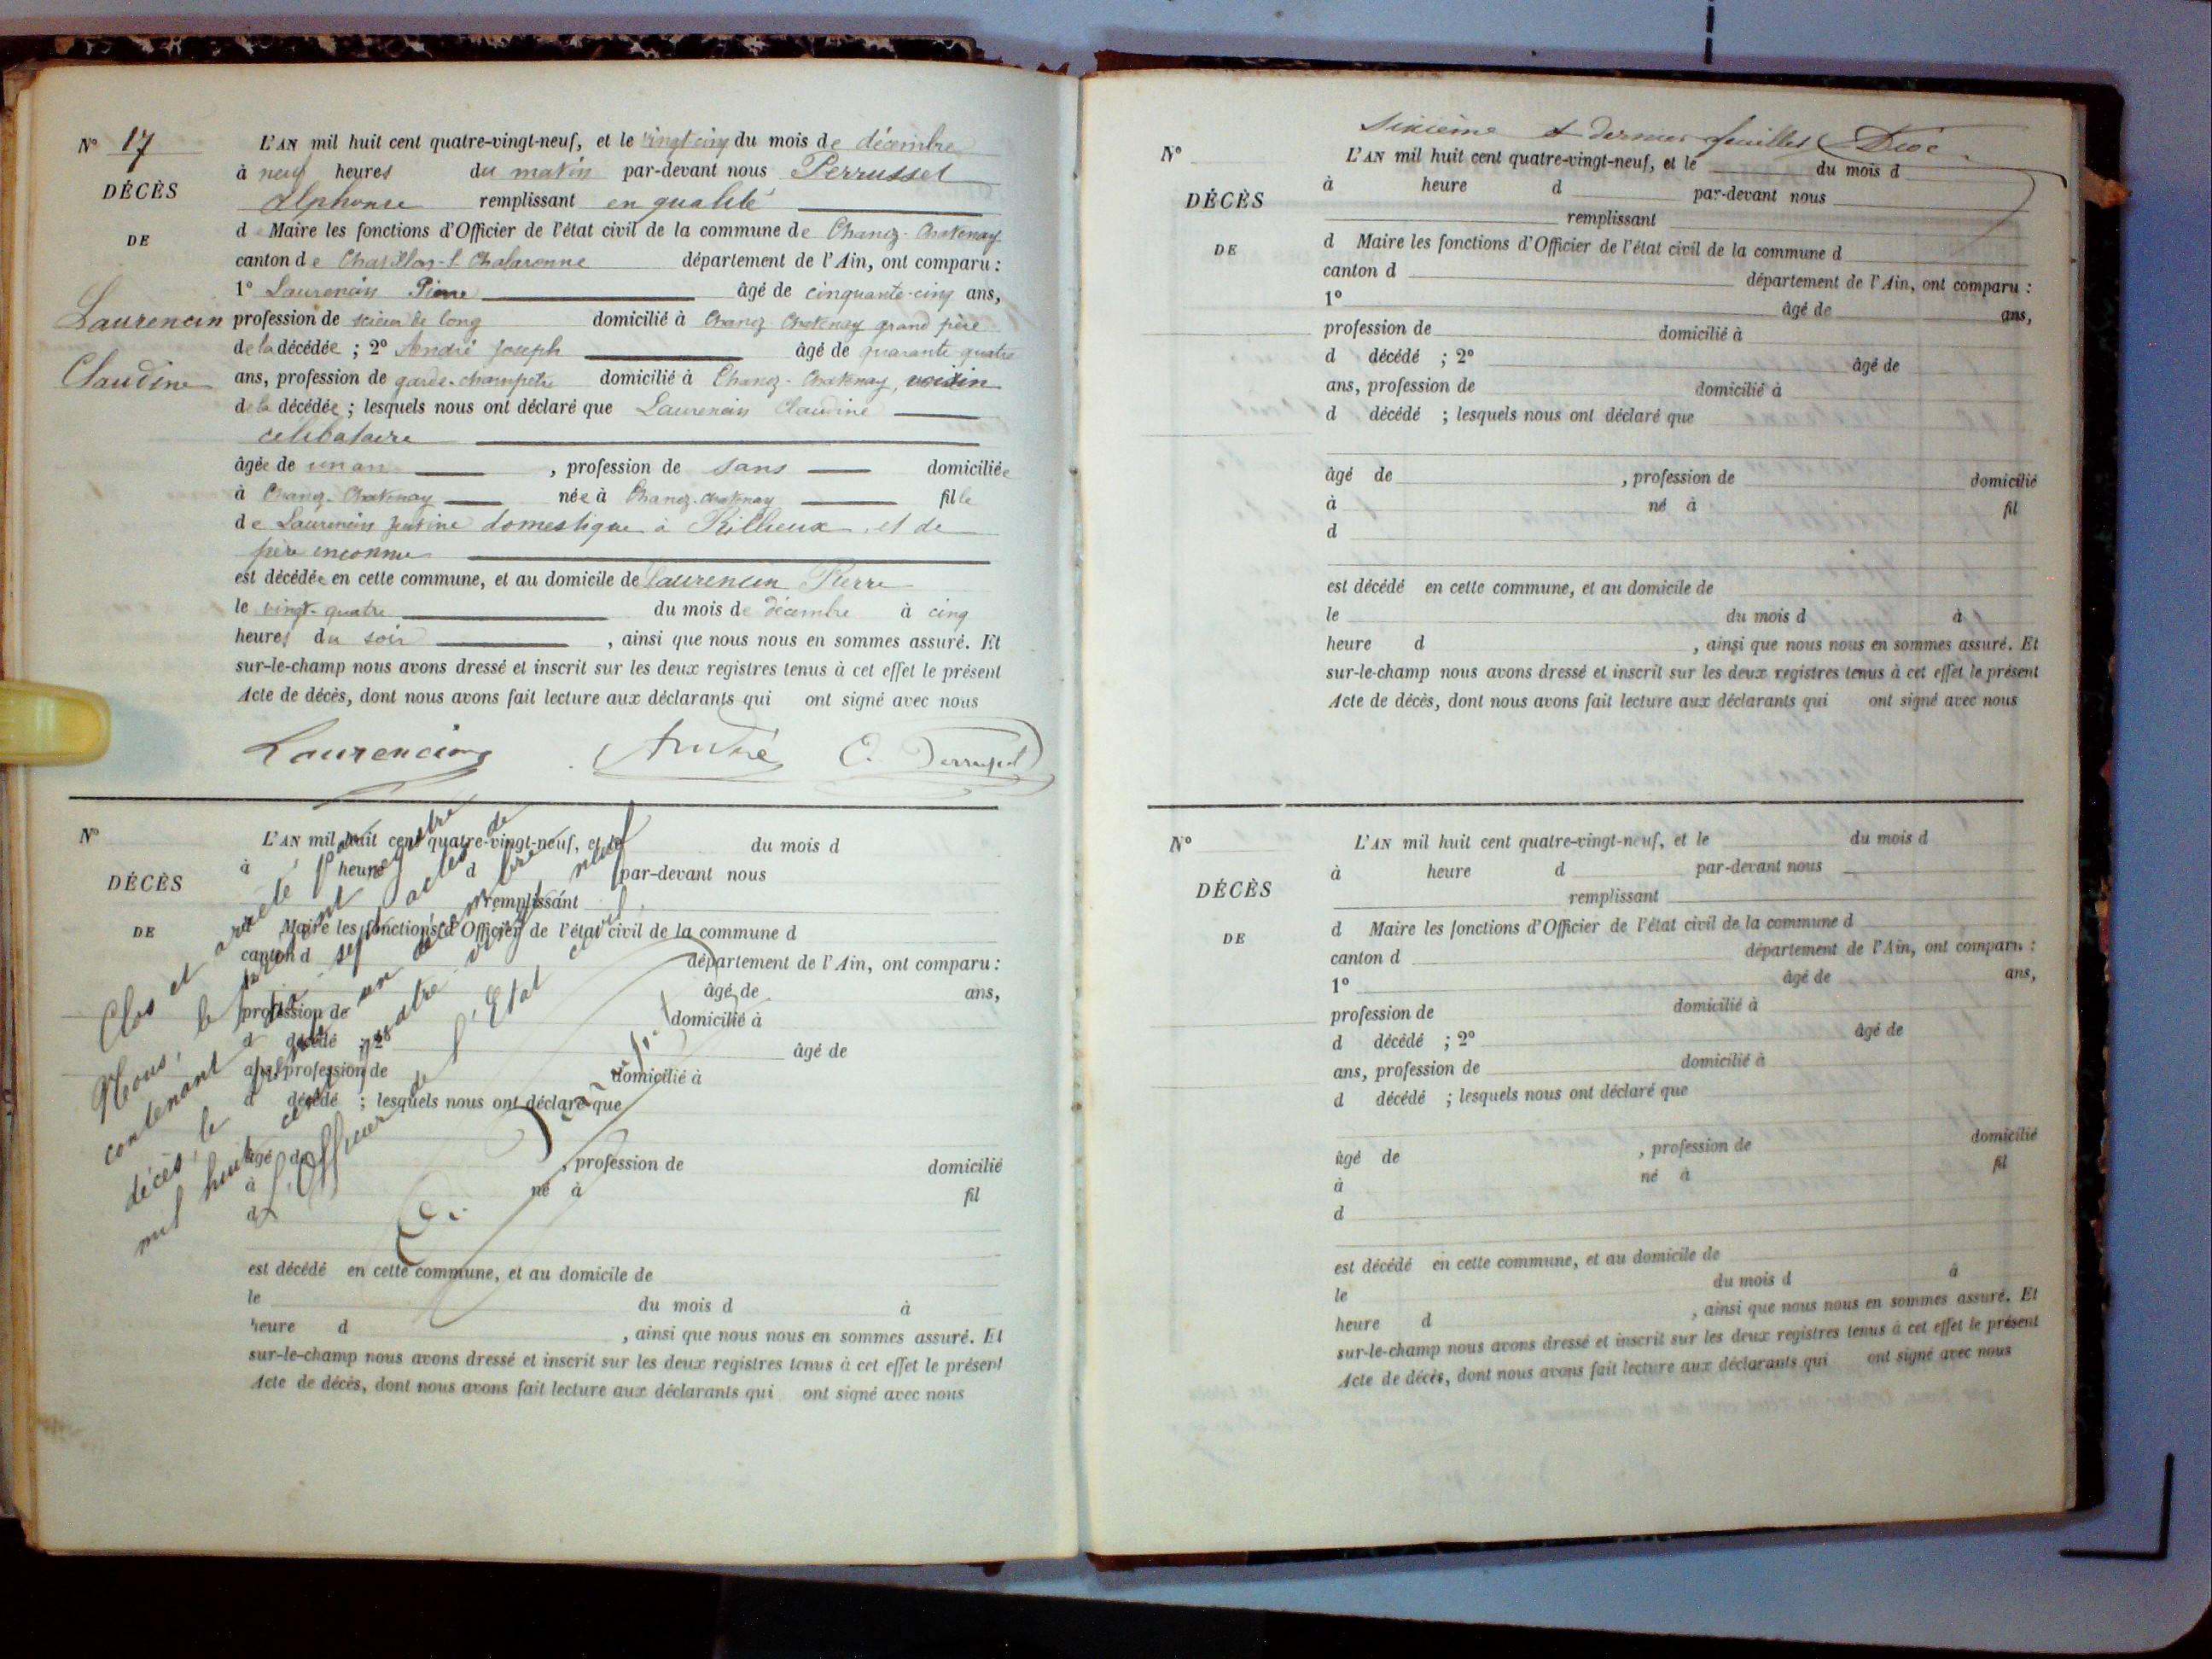 N° 17
DÉCÈS
DE
Laurencin
Claudine
L'AN mil huit cent quatre-vingt-neuf, et le vingt cinq du mois de décembre
à neuf heures du matin par-devant nous Perrusset
Alphonse remplissant en qualité
de Maire les fonctions d'Officier de l'état civil de la commune de Chanoz-Chatenay
canton de Chatillon-s-Chalaronne département de l'Ain, ont comparu :
1° Laurencin Pierre âgé de cinquante-cinq ans,
profession de scieur de long domicilié à Chanoz-Chatenay grand père
de la décédée ; 2° André Joseph âgé de quarante quatre
ans, profession de garde-champêtre domicilié à Chanoz-Chatenay, voisin
de la décédée ; lesquels nous ont déclaré que Laurencin Claudine
célibataire
âgée de un an , profession de sans domiciliée
à Chanoz-Chatenay née à Chanoz-Chatenay fille
de Laurencin Justine domestique à Rillieux et de
père inconnu
est décédée en cette commune, et au domicile de Laurencin Pierre
le vingt-quatre du mois de décembre à cinq
heures du soir , ainsi que nous nous en sommes assuré. Et
sur-le-champ nous avons dressé et inscrit sur les deux registres tenus à cet effet le présent
Acte de décès, dont nous avons fait lecture aux déclarants qui ont signé avec nous
Laurencin André Perrusset
N°
DÉCÈS
DE
L'AN mil huit cent quatre-vingt-neuf, et le du mois d
à heure d par-devant nous
remplissant
d Maire les fonctions d'Officier de l'état civil de la commune d
canton d département de l'Ain, ont comparu :
âgé de ans,
profession de domicilié à
d décédé ; 2° âgé de
ans, profession de domicilié à
d décédé ; lesquels nous ont déclaré que
âgé de , profession de domicilié
à né à fil
d
est décédé en cette commune, et au domicile de
le du mois d à
heure d , ainsi que nous nous en sommes assuré. Et
sur-le-champ nous avons dressé et inscrit sur les deux registres tenus à cet effet le présent
Acte de décès, dont nous avons fait lecture aux déclarants qui ont signé avec nous
Clos et arrêté par
Nous, le présent registre
contenant dix sept actes de
décès, le trente un décembre
mil huit cent quatre vingt neuf
L'Officier de l'Etat civil.
Sixième et dernier feuillet
N°
DÉCÈS
DE
L'AN mil huit cent quatre-vingt-neuf, et le du mois d
à heure d par-devant nous
remplissant
d Maire les fonctions d'Officier de l'état civil de la commune d
canton d département de l'Ain, ont comparu :
1° âgé de ans,
profession de domicilié à
d décédé ; 2° âgé de
ans, profession de domicilié à
d décédé ; lesquels nous ont déclaré que
âgé de , profession de domicilié
à né à fil
d
est décédé en cette commune, et au domicile de
le du mois d à
heure d , ainsi que nous nous en sommes assuré. Et
sur-le-champ nous avons dressé et inscrit sur les deux registres tenus à cet effet le présent
Acte de décès, dont nous avons fait lecture aux déclarants qui ont signé avec nous
N°
DÉCÈS
DE
L'AN mil huit cent quatre-vingt-neuf, et le du mois d
à heure d par-devant nous
remplissant
d Maire les fonctions d'Officier de l'état civil de la commune d
canton d département de l'Ain, ont comparu :
1° âgé de ans,
profession de domicilié à
d décédé ; 2° âgé de
ans, profession de domicilié à
d décédé ; lesquels nous ont déclaré que
âgé de , profession de domicilié
à né à fil
d
est décédé en cette commune, et au domicile de
le du mois d à
heure d , ainsi que nous nous en sommes assuré. Et
sur-le-champ nous avons dressé et inscrit sur les deux registres tenus à cet effet le présent
Acte de décès, dont nous avons fait lecture aux déclarants qui ont signé avec nous